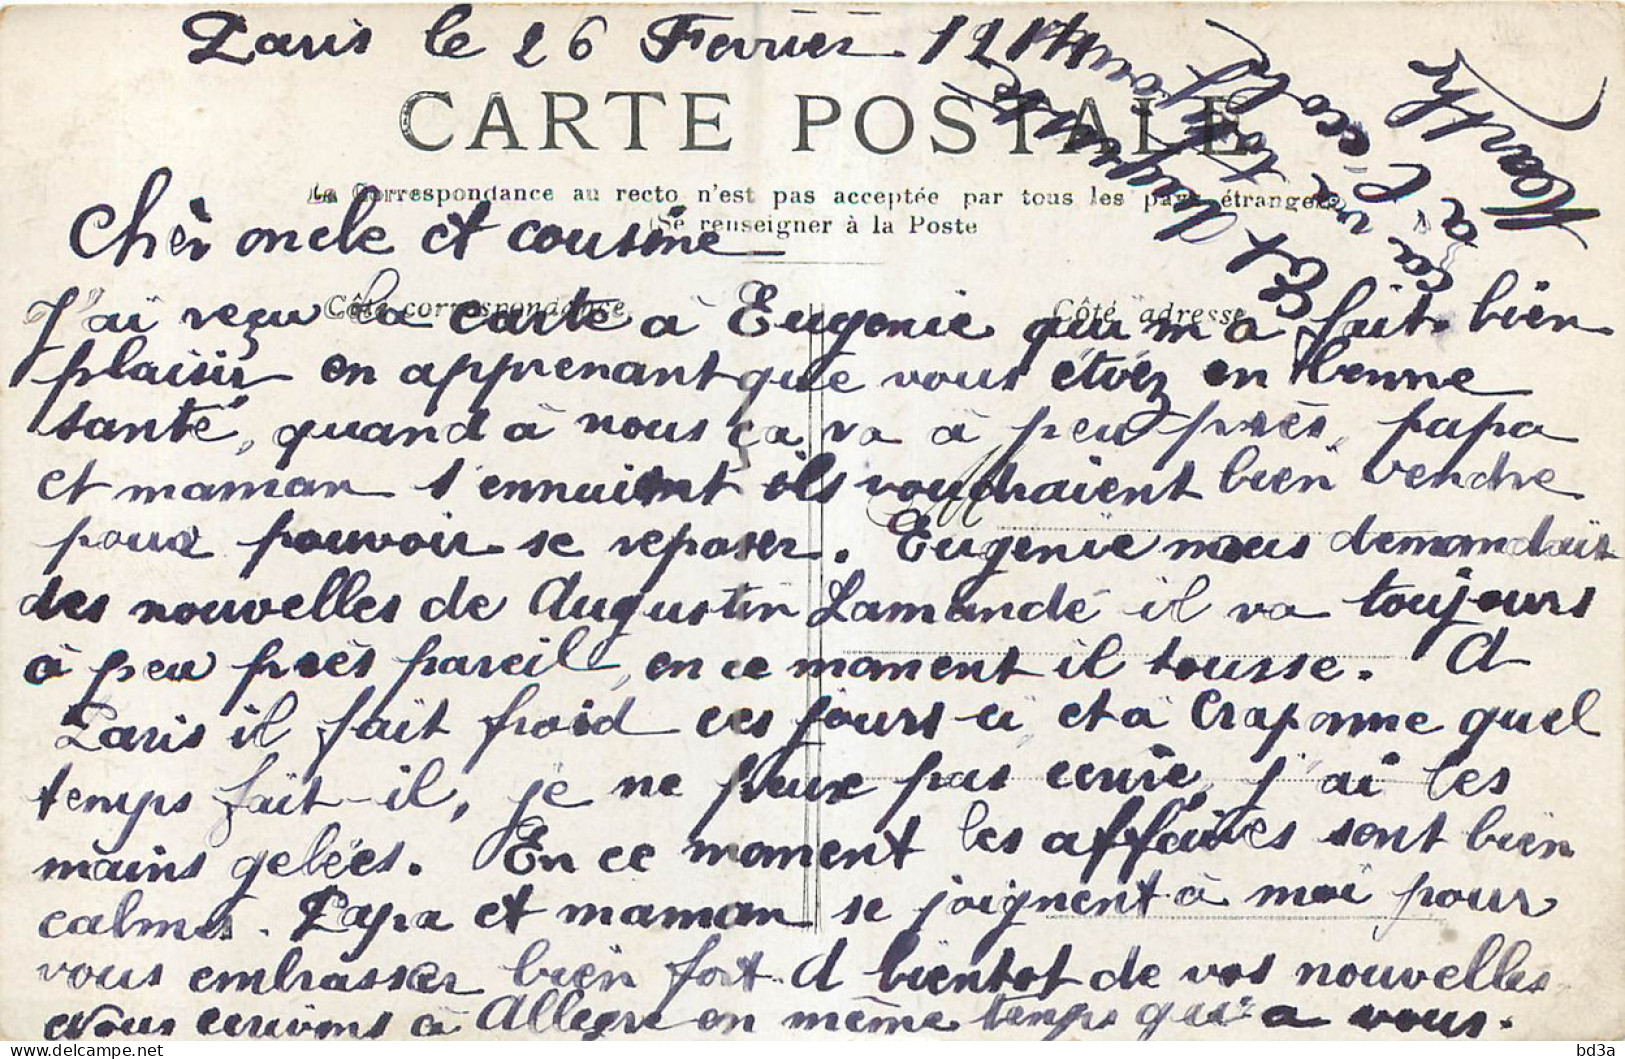 Paris le 26 Fevrier 1914
CARTE POSTALE
La Correspondance au recto n'est pas acceptée par tous les pays étrangers
(Se renseigner à la Poste
Chèr oncle et cousine
Côté correspondance
Côté adresse
J'ai reçu la carte à Eugenie qui m'a fait bien
plaisir en apprenant que vous étiez en bonne
santé, quand à nous ça va à peu près, papa
et maman s'ennuient ils voudraient bien vendre
pour pouvoir se reposer. Eugenie nous demandait
M
des nouvelles de Augustin Lamandé il va toujours
à peu près pareil, en ce moment il tousse. A
Paris il fait froid ces jours ci et à Craponne quel
temps fait-il, je ne peux pas ecrire, j'ai les
mains gelées. En ce moment les affaires sont bien
calmes. Papa et maman se joignent à moi pour
vous embrasser bien fort. A bientot de vos nouvelles
Nous ecrivons à Allegre en même temps qu'a vous.
Et Auguste
va à l'école
Marthe
bd3a